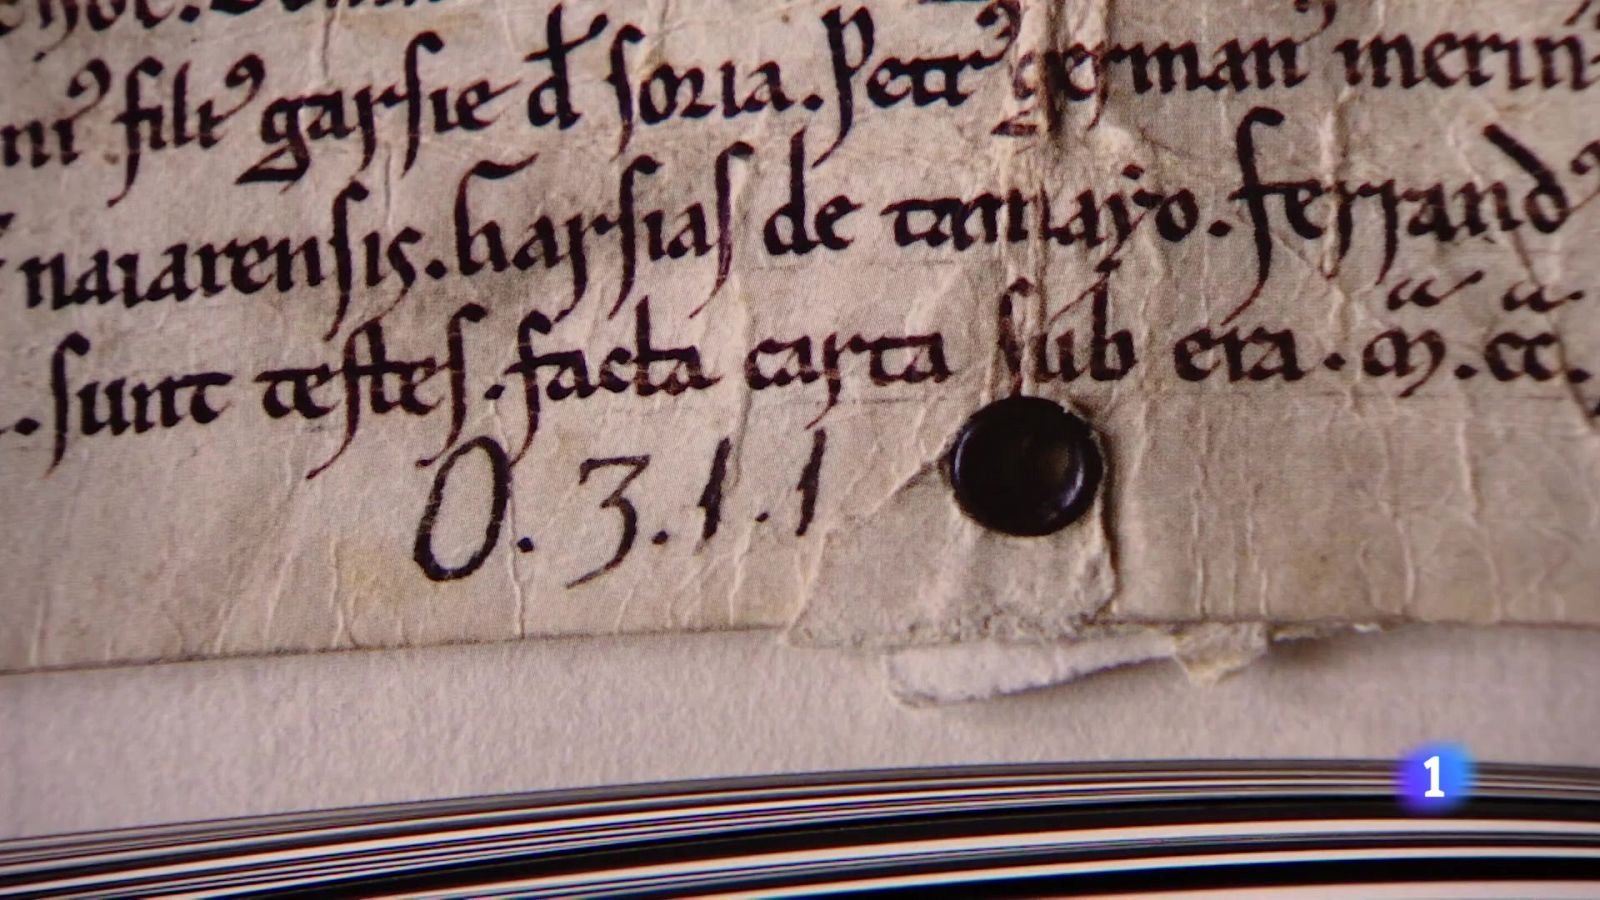 nr⁹ fili⁹ garsie d̵ soria. Petr⁹ german⁹ merin⁹
naiarensis. harsias de tamayo. ferrand⁹
. sunt testes. facta carta sub era. ͣM. ͣcc.
O. 3. 1. 1
1